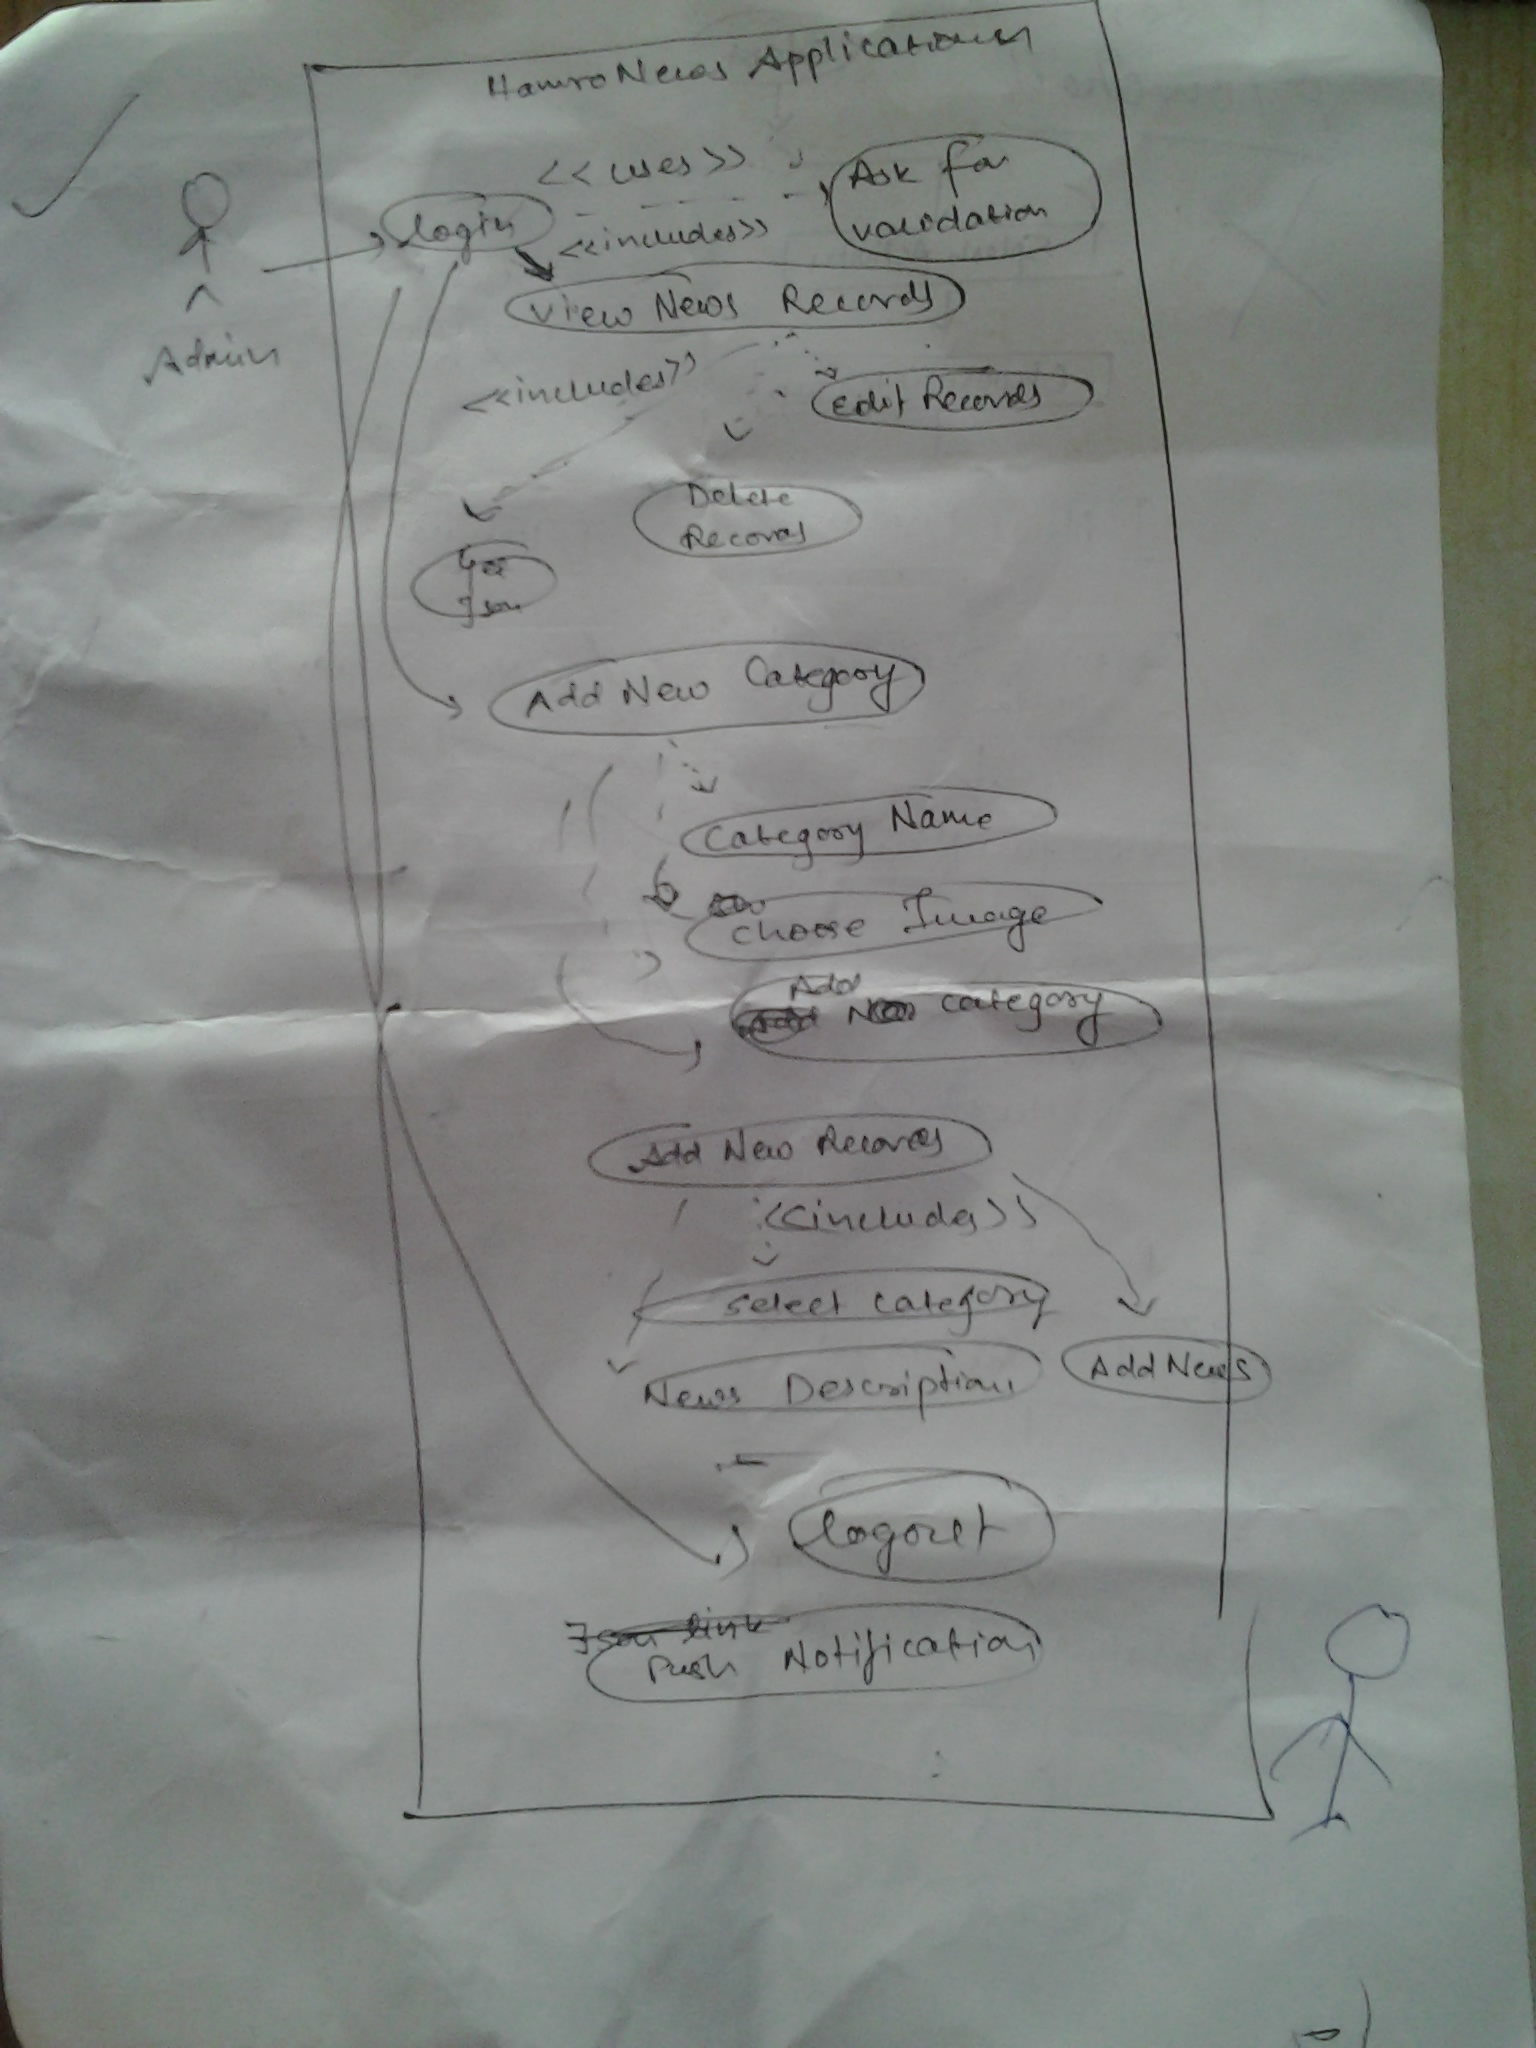 Hamro News Application
<<uses>>
Ask for
validation
login
<<includes>>
View News Records
Admin
<<includes>>
Edit Records
Delete
Records
Json
Add New Category
Category Name
choose Image
Add
category
Add New Records
<<includes>>
select category
News Description
Add News
logout
Json link
Push Notification